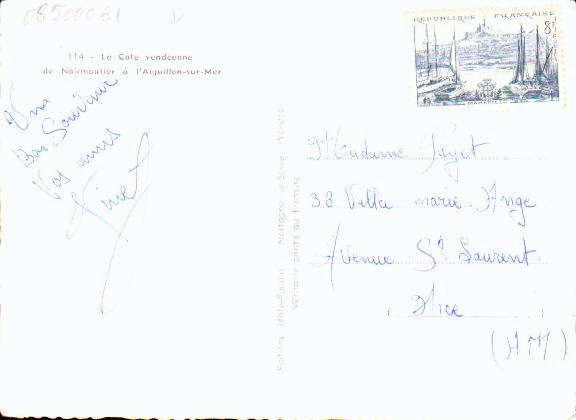 08500061 D
114 - La Côte vendéenne
de Noirmoutier à l'Aiguillon-sur-Mer
Bon Souvenir
Vos amis
RÉPUBLIQUE FRANÇAISE
8F
POSTES
MARSEILLE
Editions Jehly-Poupin - Mortagne-sur-Sèvre - Vendée
Véritable photo au bromure
Madame Payet
38 Villa marie-Ange
Avenue St Laurent.
Nice
(AM)